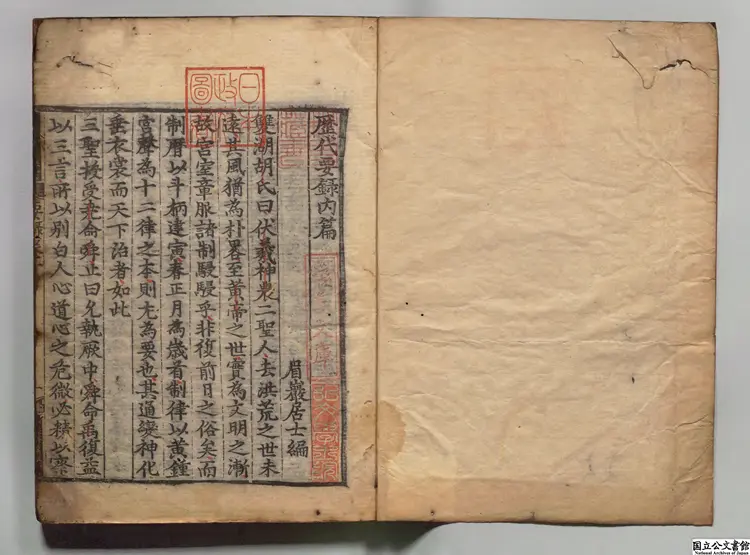 歴代要録内篇
眉巖居士編
雙湖胡氏曰伏羲神農二聖人去洪荒之世未
遠其風猶為朴畧至黄帝之世實為文明之漸
故宫室章服諸制駸駸乎非復前日之俗矣而
制曆以斗柄建寅春正月為歳首制律以黄鍾
宫聲為十二律之本則尤為要也其通變神化
垂衣裳而天下治者如此
三聖授受堯命舜止曰允執厥中舜命禹復益
以三言所以别白人心道心之危微必精以察
日本
政
圖
国立公文書館
National Archives of Japan